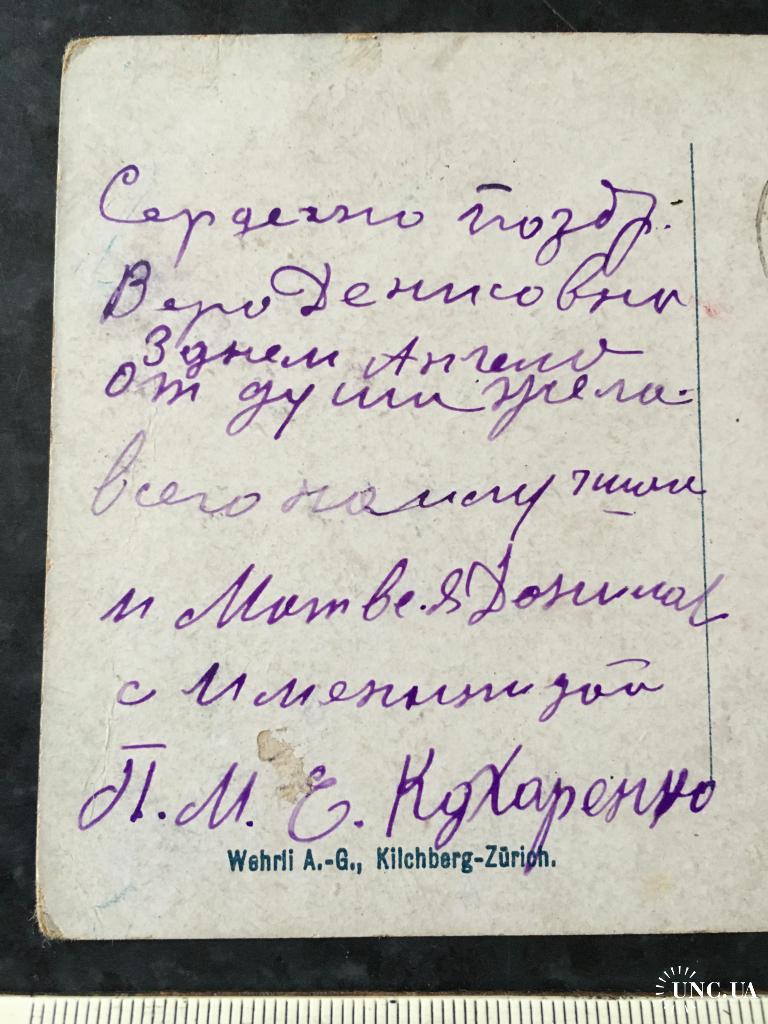 Сердечно Поздр.
Веро Денисовны
З днем Ангела
от души жела.
всего наилучшаи
и Матвея Данилов
с Именинницой
П. М. Е. Кухаренко
Wehrli A.-G., Kilchberg-Zürich.
UNC.UA